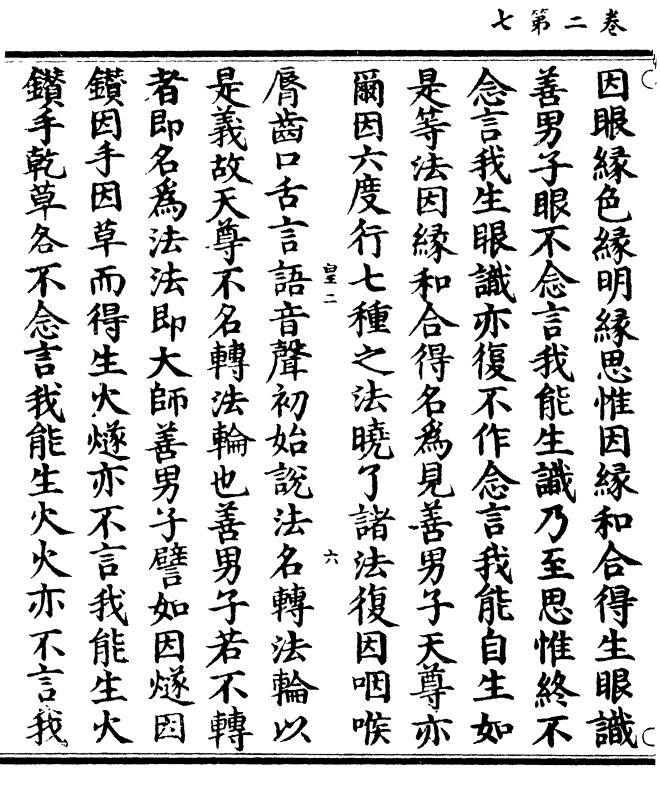 卷二第七
因眼緣色緣明緣思惟因緣和合得生眼識
善男子眼不念言我能生識乃至思惟終不
念言我生眼識亦復不作念言我能自生如
是等法因緣和合得名爲見善男子天尊亦
爾因六度行七種之法曉了諸法復因咽喉
皇二
六
脣齒口舌言語音聲初始說法名轉法輪以
是義故天尊不名轉法輪也善男子若不轉
者即名爲法法即大師善男子譬如因燧因
鑚因手因草而得生火燧亦不言我能生火
鑚手乾草各不念言我能生火火亦不言我